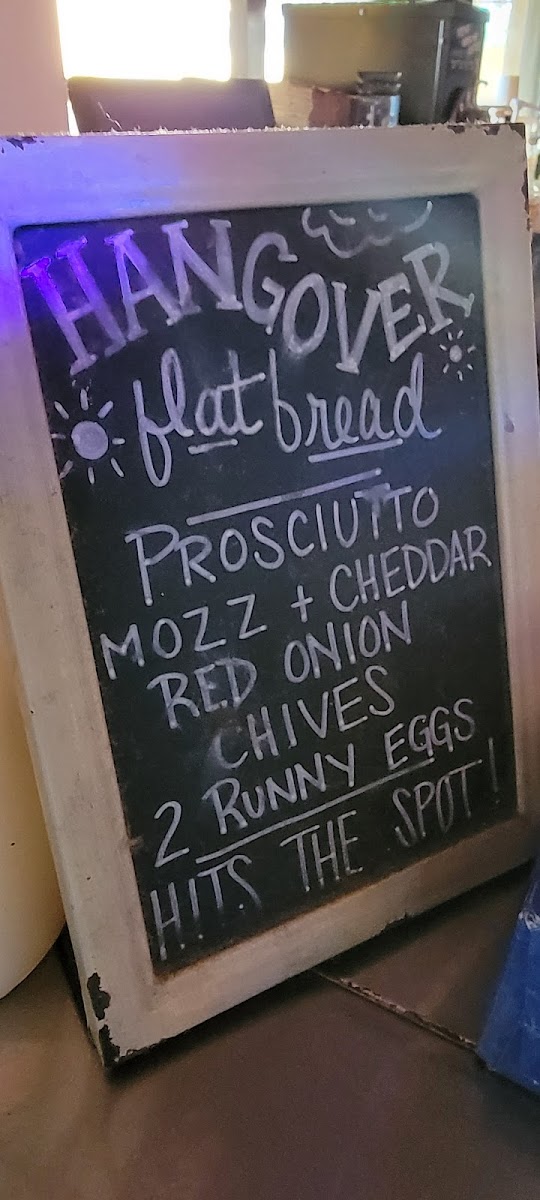 HANGOVER
flatbread
PROSCIUTTO
MOZZ + CHEDDAR
RED ONION
CHIVES
2 RUNNY EGGS
HITS THE SPOT!